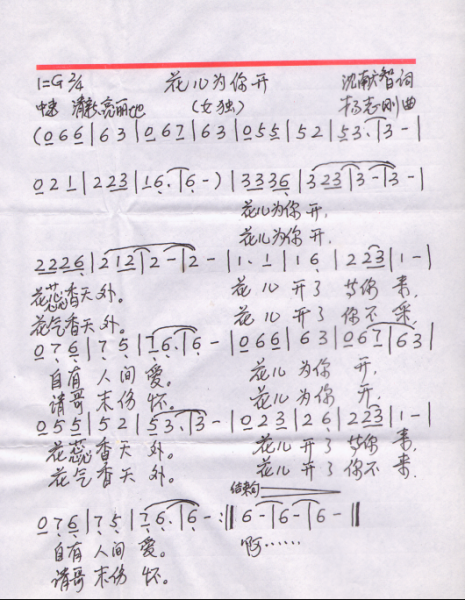 1=G 2/4 花儿为你开 沈献智词
中速 清新亮丽地 (女独) 杨志刚曲
(0 6 6 | 6 3 | 0 6 7 | 6 3 | 0 5 5 | 5 2 | 5 3. | 3 - |
0 2 1 | 2 2 3 | 1 6. | 6 - ) | 3 3 3 6 | 3 2 3 | 3 - | 3 - |
花儿为你 开,
花儿为你 开,
2 2 2 6 | 2 1 2 | 2 - | 2 - | 1. 1 | 1 6 | 2 2 3 | 1 - |
花蕊香天 外。 花 儿 开了 等你 来,
花气香天 外。 花 儿 开了 你不 来,
0 7 6 | 7 5 | 7 6. | 6 - | 0 6 6 | 6 3 | 0 6 7 | 6 3 |
自有 人间 爱。 花儿 为你 开,
请哥 末伤 怀。 花儿 为你 开,
0 5 5 | 5 2 | 5 3. | 3 - | 0 2 3 | 2 6 | 2 2 3 | 1 - |
花蕊 香天 外。 花儿 开了 等你 来,
花气 香天 外。 花儿 开了 你不 来,
结束句
0 7 6 | 7 5 | 7 6. | 6 - :‖ 6 - | 6 - | 6 - ‖
自有 人间 爱。 啊……
请哥 末伤 怀。